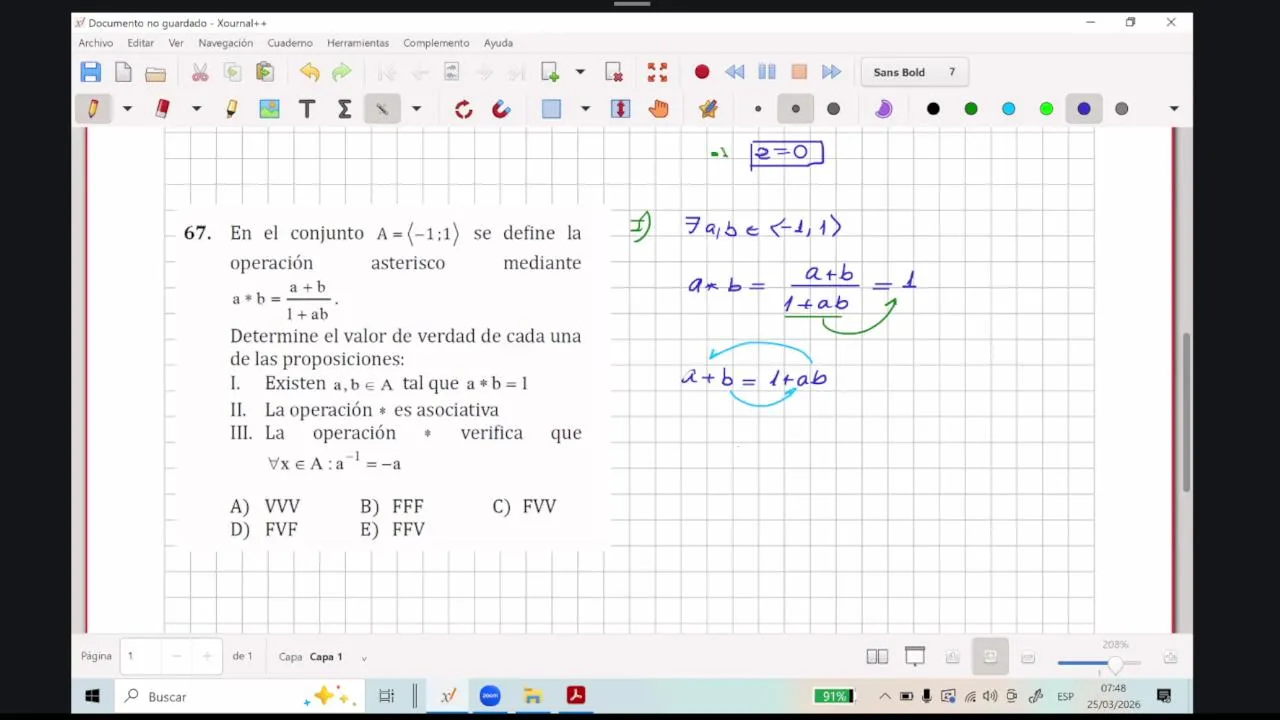 Documento no guardado - Xournal++
Archivo Editar Ver Navegación Cuaderno Herramientas Complemento Ayuda
Sans Bold 7
-1 e=0
67. En el conjunto A = ⟨−1;1⟩ se define la
operación asterisco mediante
a * b = (a + b)/(1 + ab).
Determine el valor de verdad de cada una
de las proposiciones:
I. Existen a, b ∈ A tal que a * b = 1
II. La operación * es asociativa
III. La operación * verifica que
∀x ∈ A : a⁻¹ = −a
A) VVV B) FFF C) FVV
D) FVF E) FFV
I) ∃ a, b ∈ <-1, 1>
a * b = (a+b)/(1+ab) = 1
a + b = 1+ab
Página 1 de 1 Capa Capa 1
208%
Buscar
zoom
91%
ESP
07:48
25/03/2026